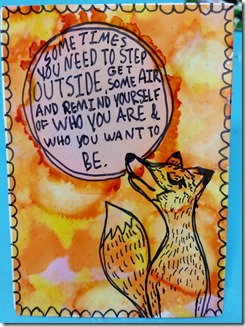 SOMETIMES
YOU NEED TO STEP
OUTSIDE, GET
SOME AIR
AND REMIND YOURSELF
OF WHO YOU ARE &
WHO YOU WANT TO
BE.